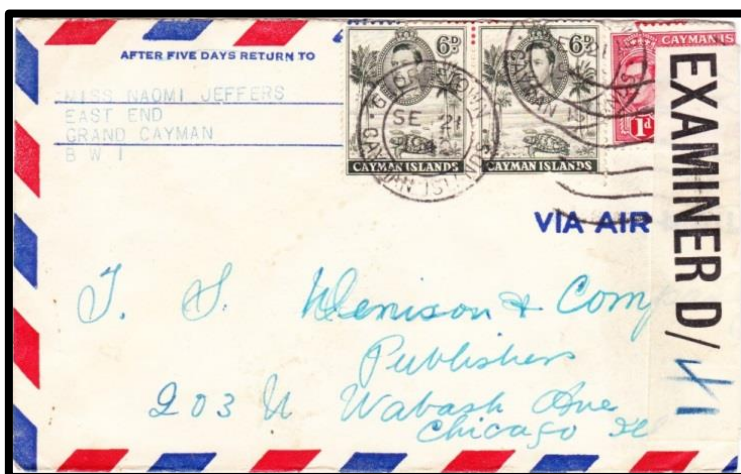 AFTER FIVE DAYS RETURN TO
MISS NAOMI JEFFERS
EAST END
GRAND CAYMAN
B W I
6D
6D
CAYMAN IS
1d
GEORGETOWN
SE 21
CAYMAN ISLANDS
CAYMAN ISLANDS
CAYMAN ISLANDS
VIA AIR
EXAMINER D/
T. S. Denison & Comp
Publishers
203 N Wabash Ave
Chicago Ill